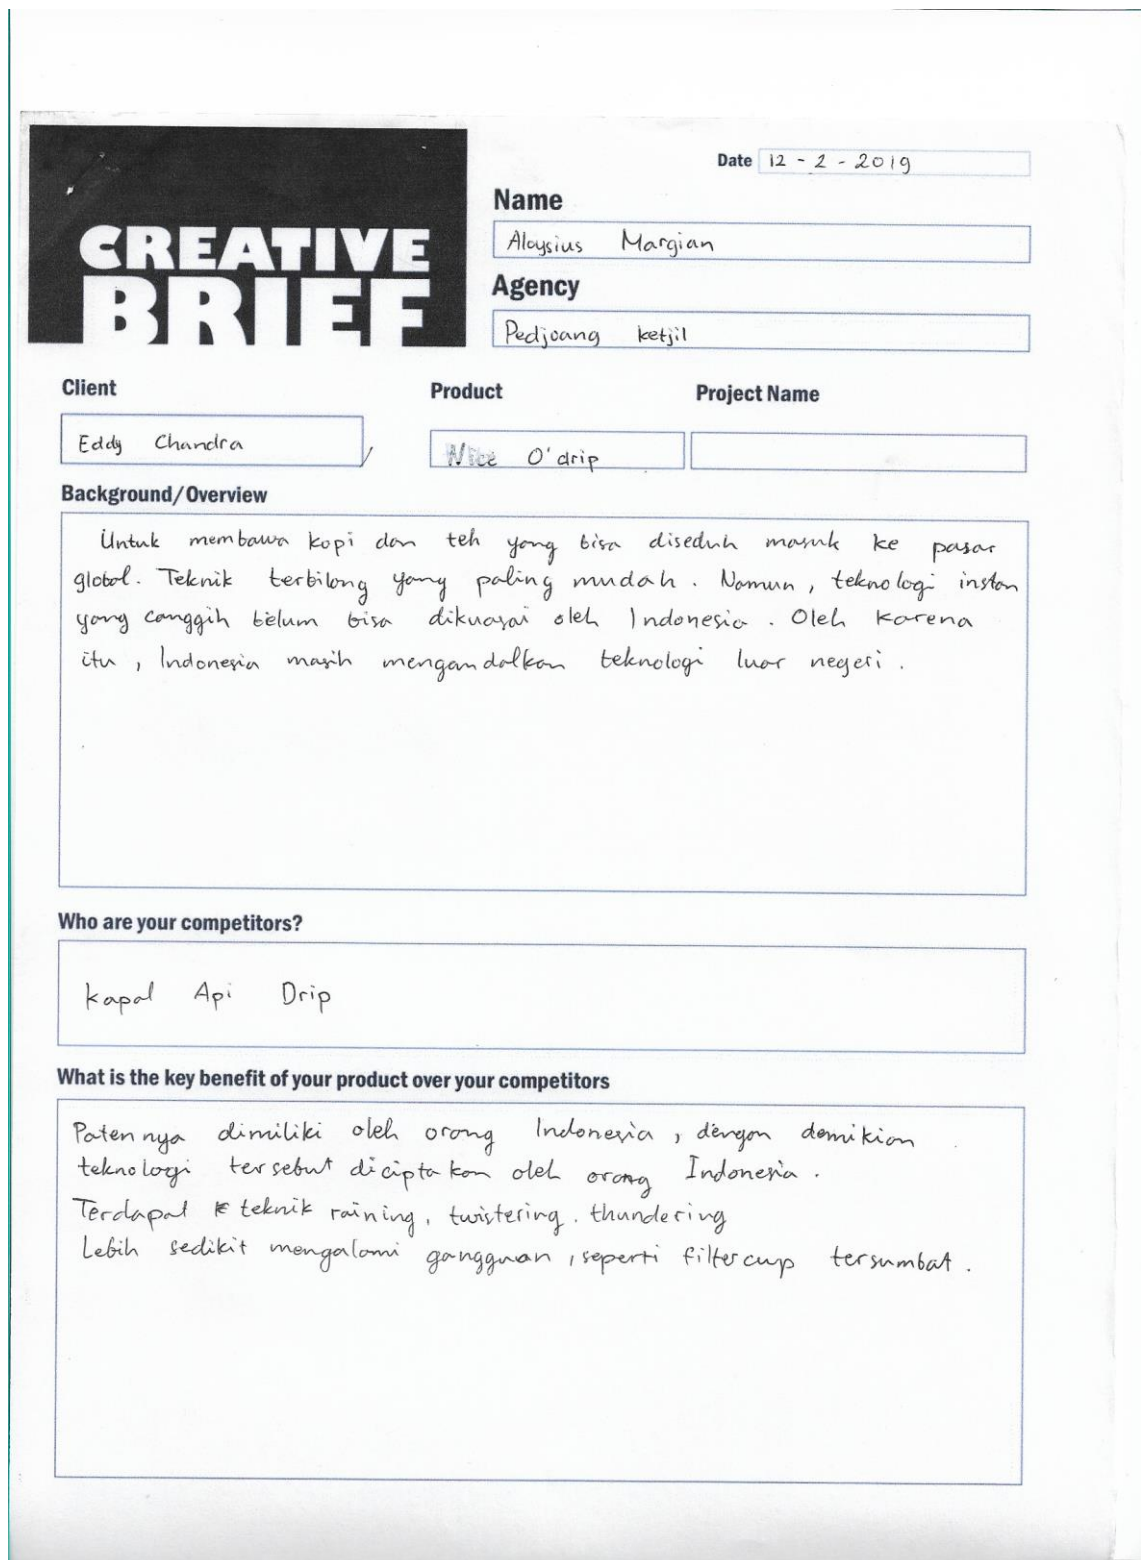 CREATIVE
BRIEF
Date 12 - 2 - 2019
Name
Aloysius Margian
Agency
Pedjoang ketjil
Client
Eddy Chandra
Product
O'drip
Project Name
Background/Overview
Untuk membawa kopi dan teh yang bisa diseduh masuk ke pasar
global. Teknik terbilang yang paling mudah. Namun, teknologi instan
yang canggih belum bisa dikuasai oleh Indonesia. Oleh karena
itu, Indonesia masih mengandalkan teknologi luar negeri.
Who are your competitors?
Kapal Api Drip
What is the key benefit of your product over your competitors
Paten nya dimiliki oleh orang Indonesia, dengan demikian
teknologi tersebut diciptakan oleh orang Indonesia.
Terdapat teknik raining, twistering. thundering
Lebih sedikit mengalami gangguan, seperti filtercup tersumbat.